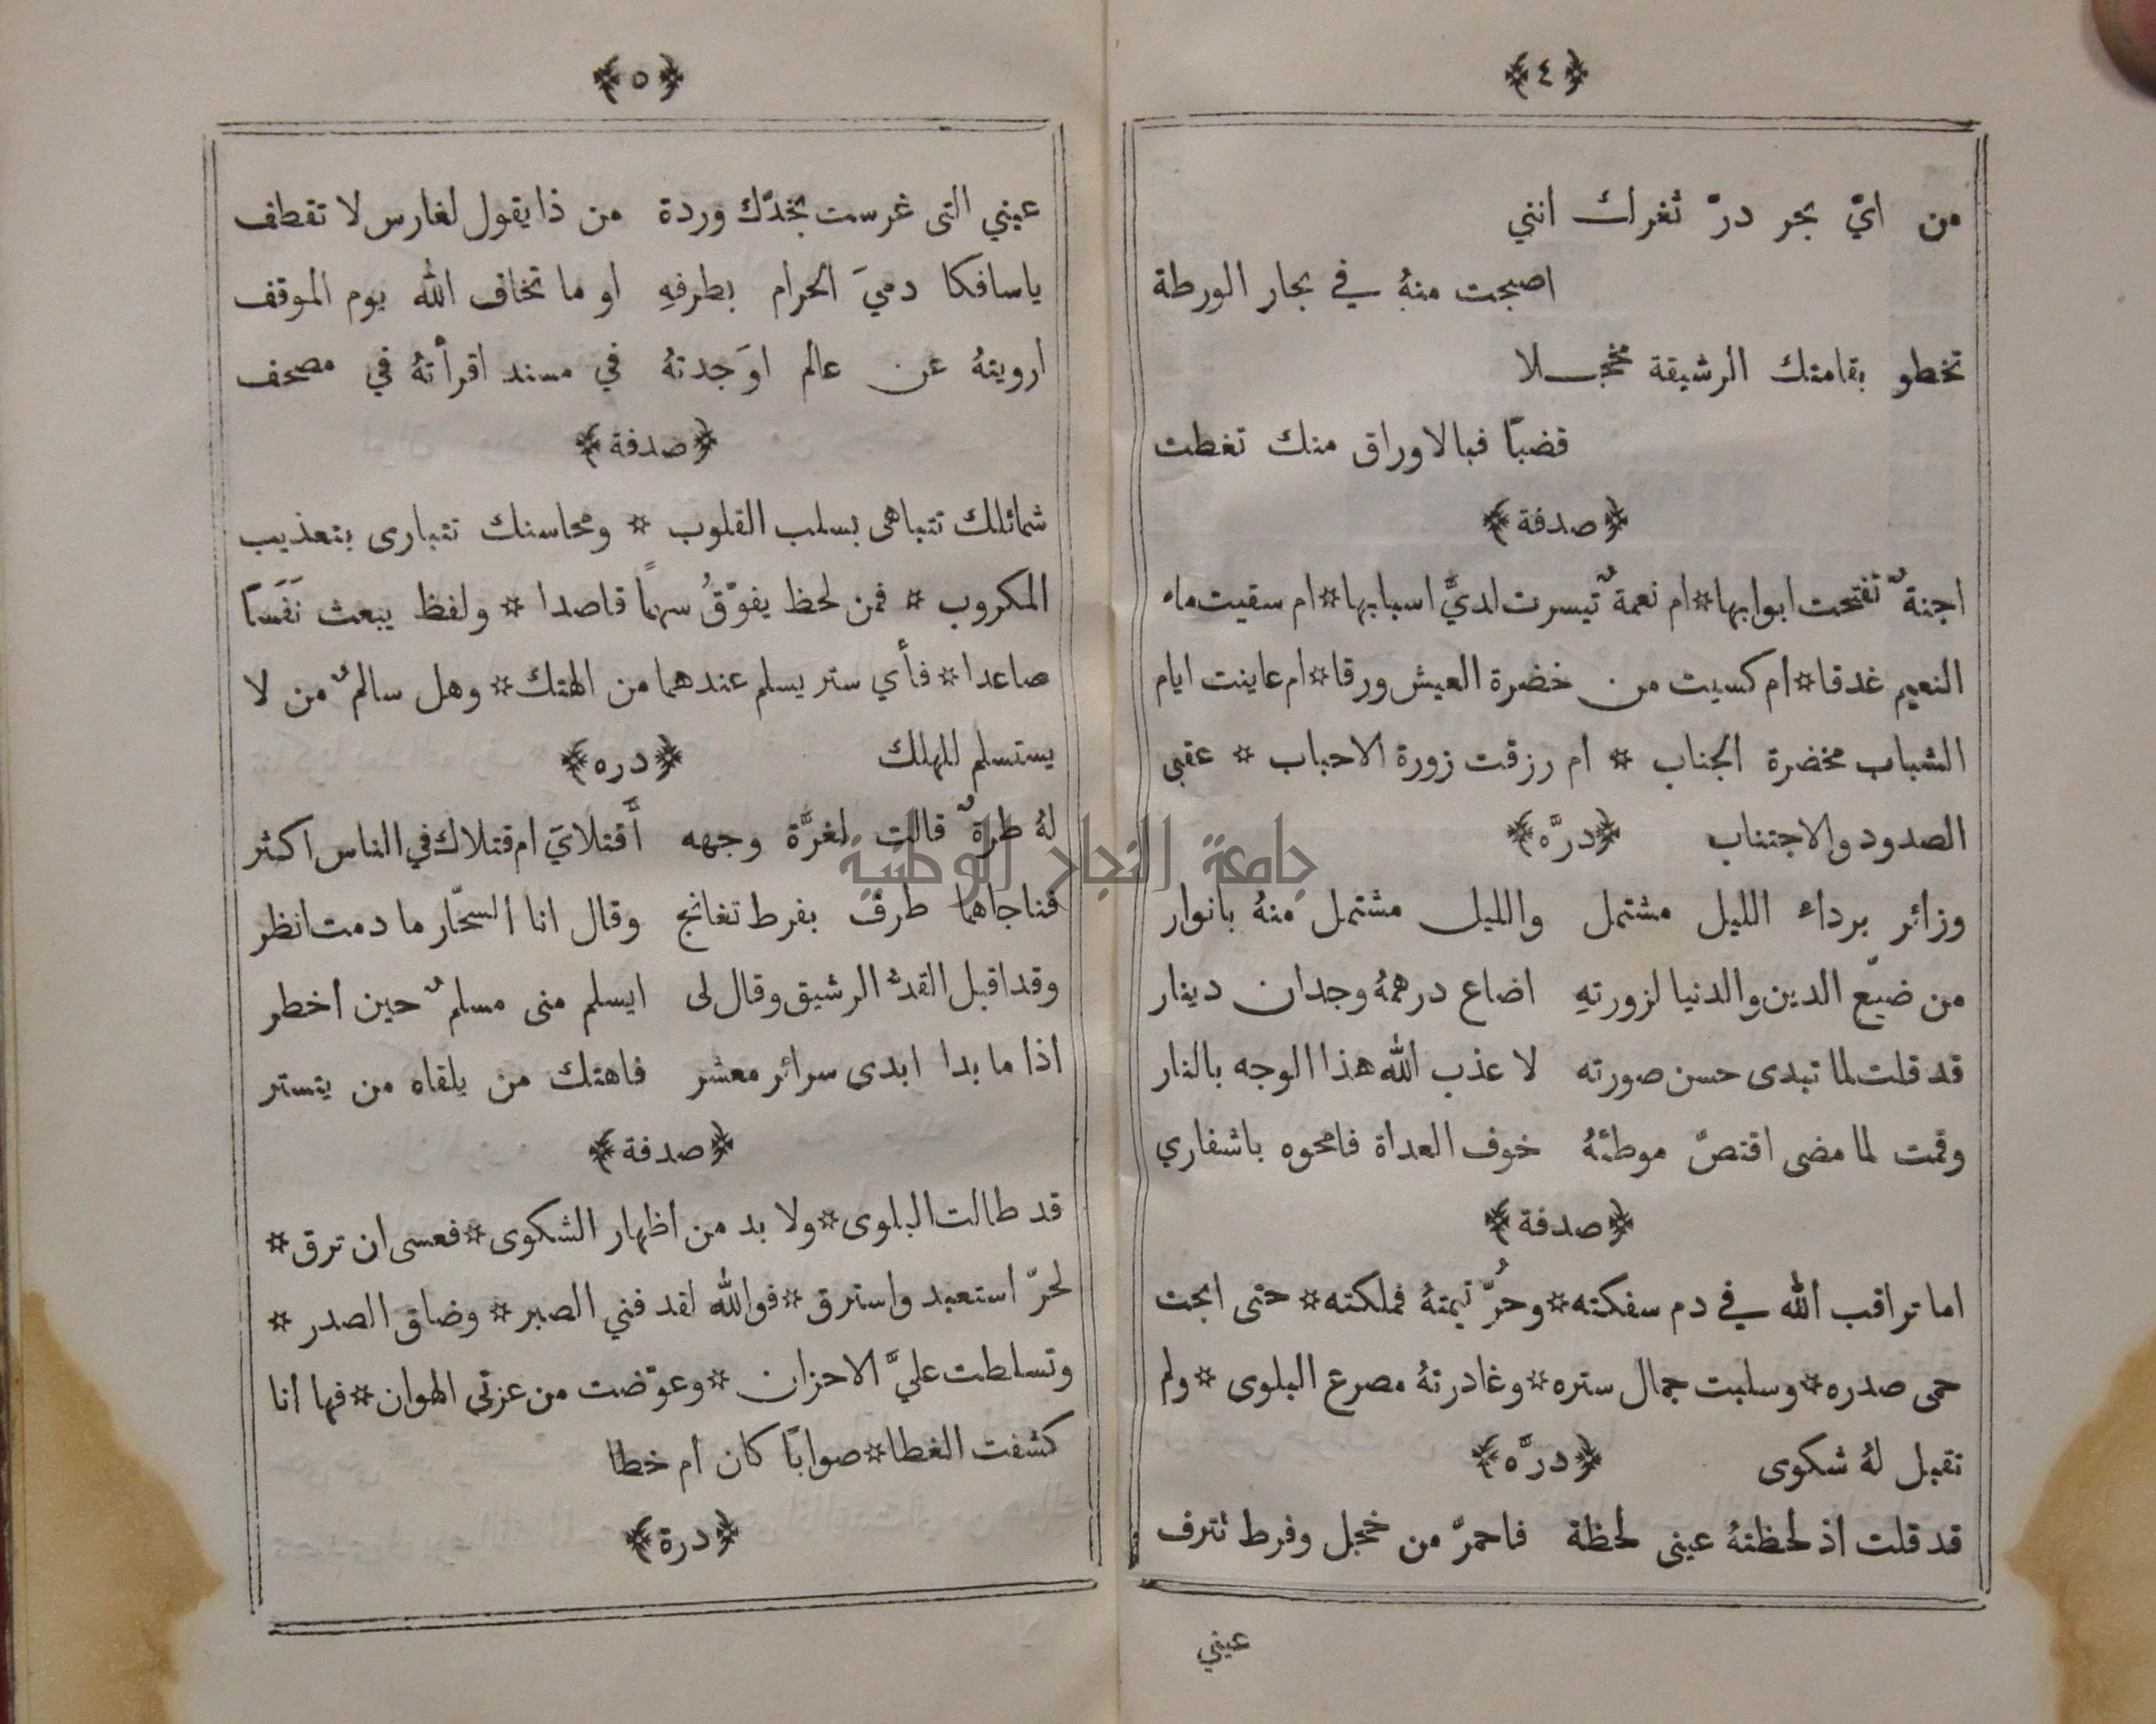 ﴿٤﴾
من ايّ بحر درّ ثغرك انني
اصبحت منهُ في بحار الورطة
تخطو بقامتك الرشيقة مخجلا
قضبًا فبالاوراق منك تغطت
﴿صدفة﴾
اجنةٌ تفتحت ابوابها * ام نعمةٌ تيسرت لديَّ اسبابها * ام سقيت ماء
النعيم غدقا * ام كسيت من خضرة العيش ورقا * ام عاينت ايام
الشباب مخضرة الجناب * ام رزقت زورة الاحباب * عقبى
الصدود والاجتناب ﴿درَّه﴾
وزائر برداء الليل مشتمل والليل مشتمل منهُ بانوار
من ضيّع الدين والدنيا لزورتهِ اضاع درهمهُ وجدان دينار
قد قلت لما تبدى حسن صورته لا عذب الله هذا الوجه بالنار
وقمت لما مضى اقتصّ موطئهُ خوف العداة فامحوه باشفاري
﴿صدفة﴾
اما تراقب الله في دم سفكته * وحُرّ تيمتهُ فملكته * حتى ابحت
حمى صدره * وسلبت جمال ستره * وغادرتهُ مصرع البلوى * ولم
تقبل لهُ شكوى ﴿درَّه﴾
قد قلت اذ لحظتهُ عيني لحظة فاحمرّ من خجل وفرط تترف
عيني
﴿٥﴾
عيني التى غرست بخدّك وردة من ذا يقول لغارس لا تقطف
ياسافكا دميَ الحرام بطرفهِ او ما تخاف الله يوم الموقف
ارويتهُ عن عالم اوَجدتهُ في مسند اقرأتهُ في مصحف
﴿صدفة﴾
شمائلك تتباهى بسلب القلوب * ومحاسنك تتبارى بتعذيب
المكروب * فمن لحظ يفوّقُ سهماً قاصدا * ولفظ يبعث نَفَسَاً
صاعدا * فأي ستر يسلم عندهما من الهتك * وهل سالمٌ من لا
يستسلم للهلك ﴿دره﴾
لهُ طرةٌ قالت لغرَّة وجهه أَقتلايَ ام قتلاك في الناس اكثر
فناجاهما طرفٌ بفرط تغانج وقال انا السحّار ما دمت انظر
وقد اقبل القدُّ الرشيق وقال لى ايسلم منى مسلمٌ حين اخطر
اذا ما بدا ابدى سرائر معشر فاهتك من يلقاه من يتستر
﴿صدفة﴾
قد طالت البلوى * ولا بد من اظهار الشكوى * فعسى ان ترق *
لحرّ استعبد واسترق * فوالله لقد فني الصبر * وضاق الصدر *
وتسلطت عليَّ الاحزان * وعوّضت من عزتي الهوان * فها انا
كشفت الغطا * صوابًا كان ام خطا
﴿درة﴾
جامعة النجاح الوطنية